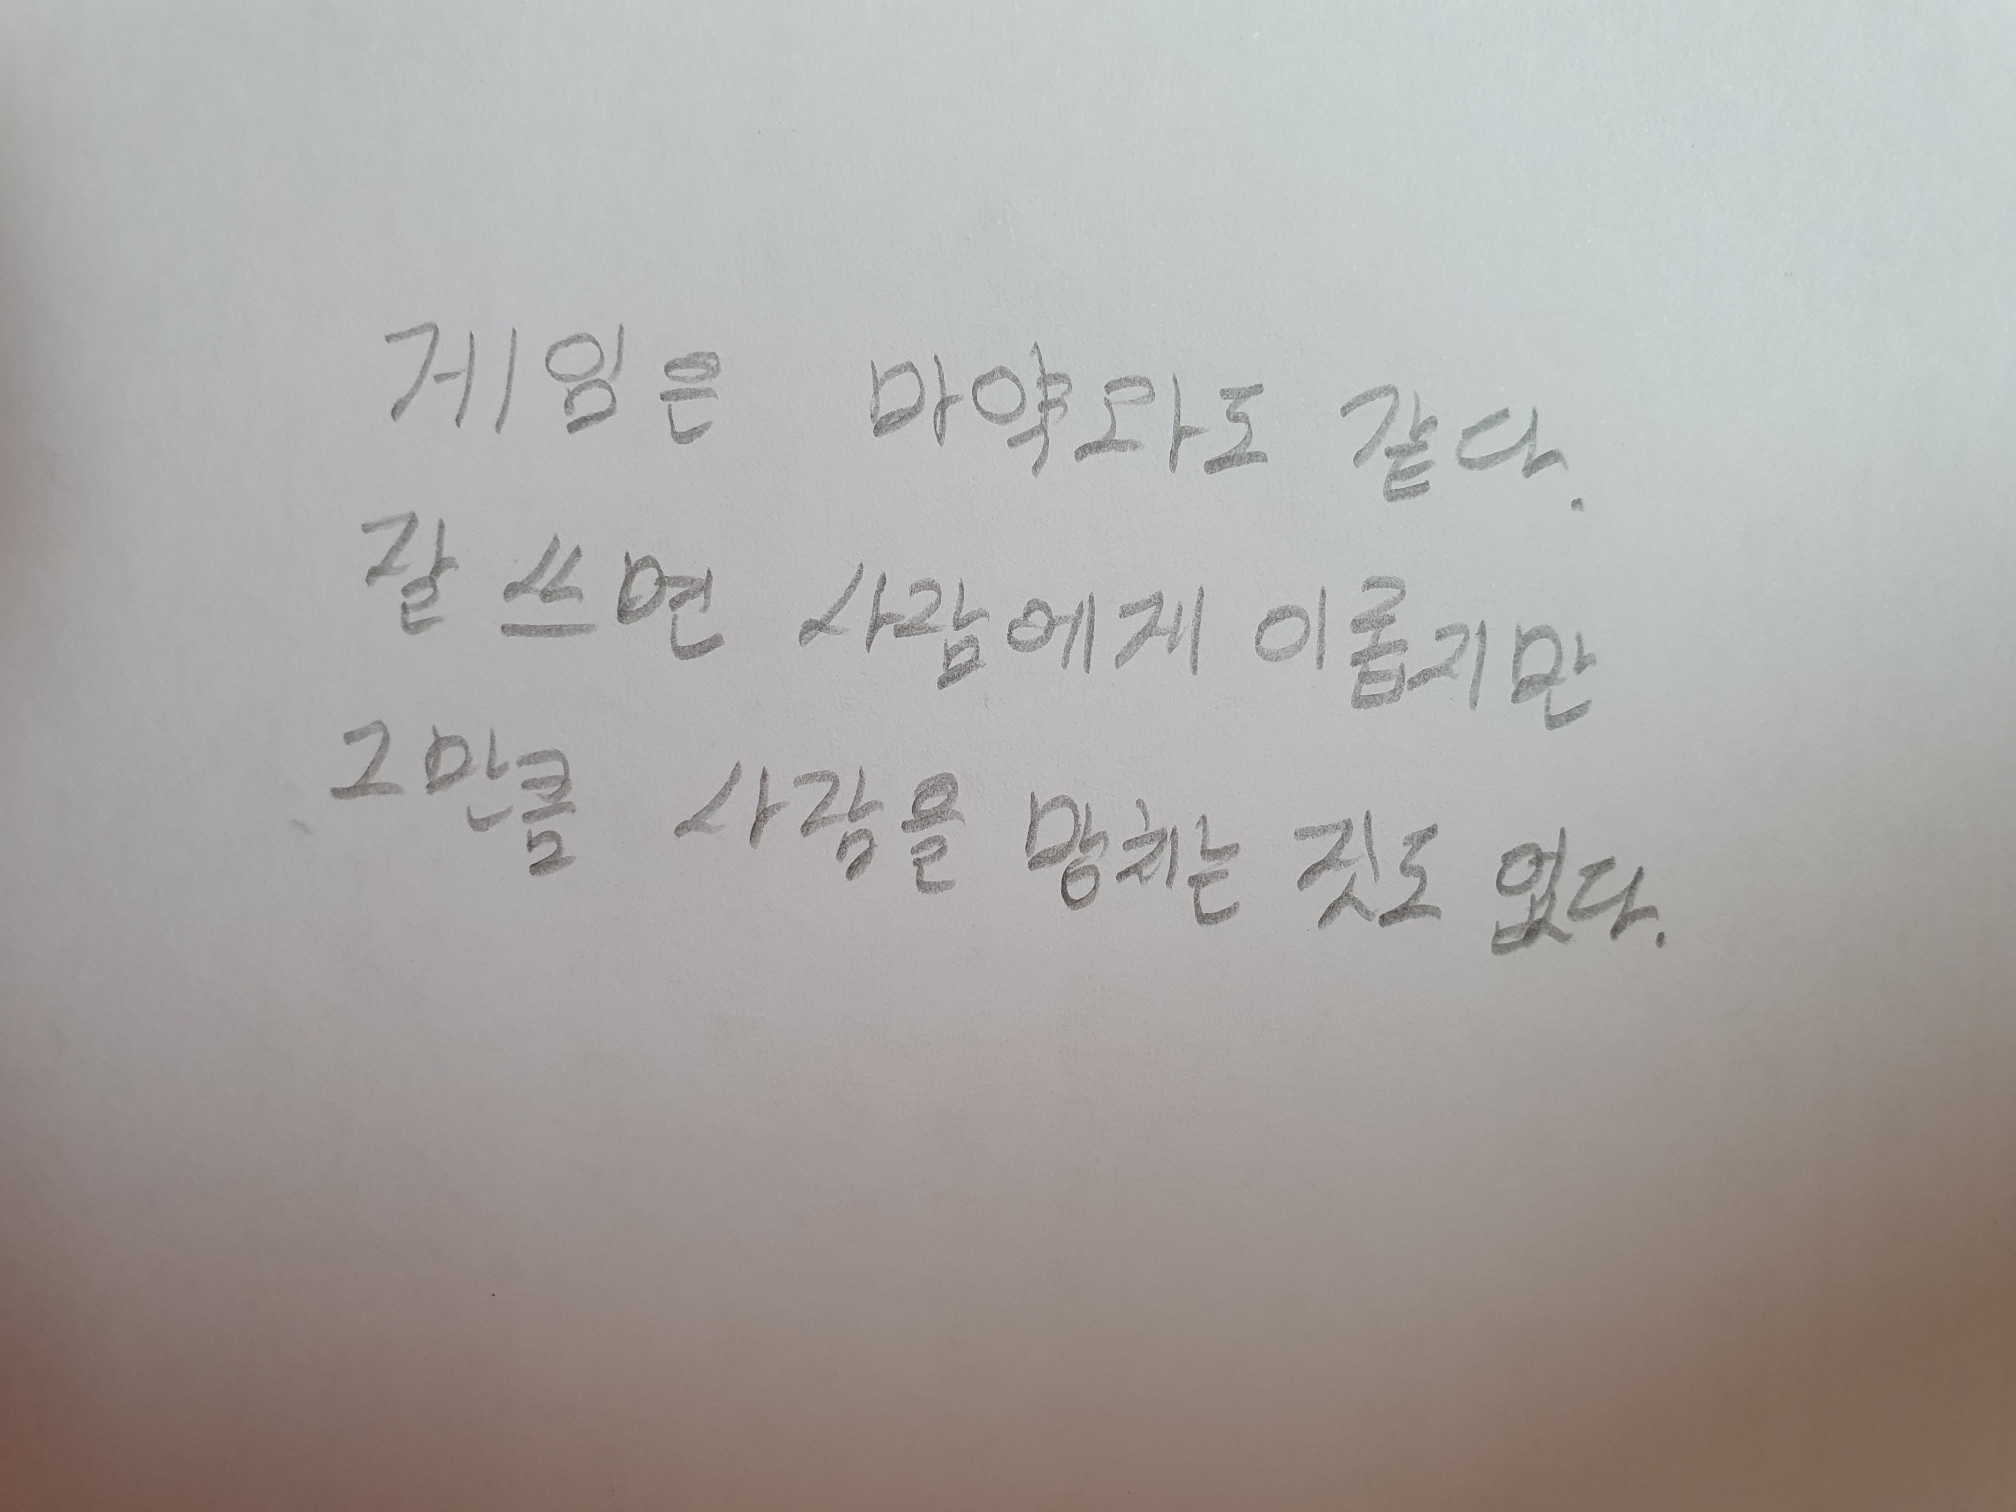 게임은 마약와도 같다.
잘 쓰면 사람에게 이롭지만
그만큼 사람을 망치는 짓도 없다.